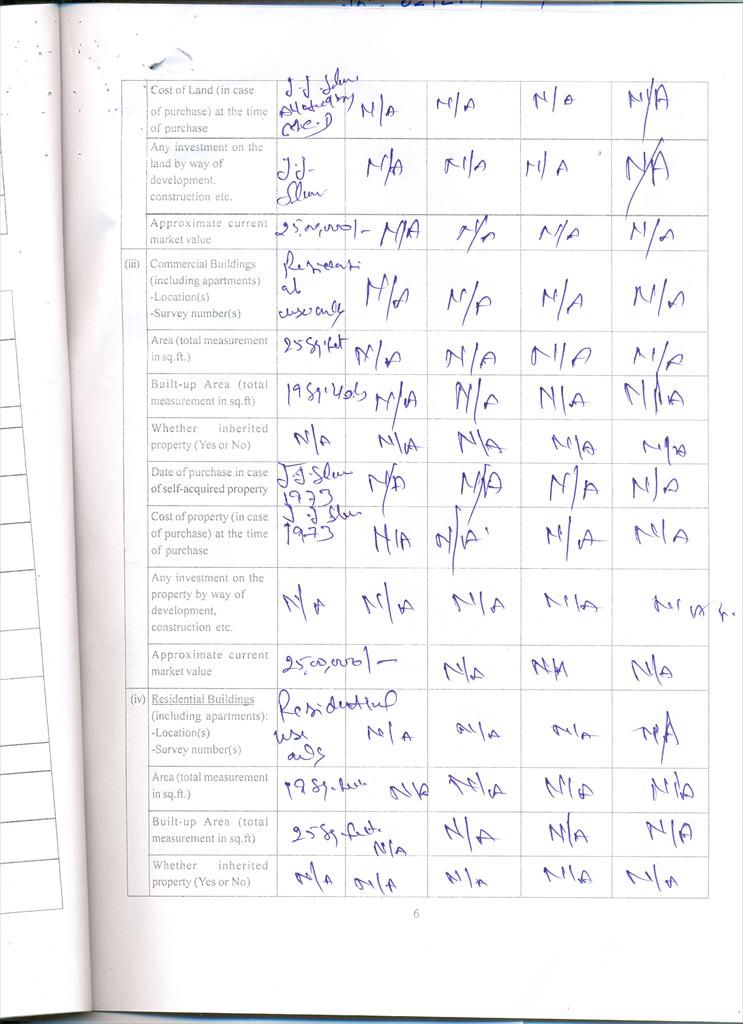 Cost of Land (in case J.J. N/A N/A N/A N/A
of purchase) at the time
of purchase
Any investment on the J.J. N/A N/A N/A N/A
land by way of
development,
construction etc.
Approximate current 25,00,000/- N/A N/A N/A N/A
market value
(iii) Commercial Buildings N/A N/A N/A N/A
(including apartments)
-Location(s)
-Survey number(s) use only
Area (total measurement 25 Sq. feet N/A N/A N/A N/A
in sq.ft.)
Built-up Area (total 19 Sq. N/A N/A N/A N/A
measurement in sq.ft)
Whether inherited N/A N/A N/A N/A N/A
property (Yes or No)
Date of purchase in case J.J. N/A N/A N/A N/A
of self-acquired property 1973
Cost of property (in case J.J. N/A N/A N/A N/A
of purchase) at the time 1973
of purchase
Any investment on the N/A N/A N/A N/A N/A
property by way of
development,
construction etc.
Approximate current 25,00,000/- N/A N/A N/A
market value
(iv) Residential Buildings Residential N/A N/A N/A N/A
(including apartments):
-Location(s) use
-Survey number(s) only
Area (total measurement 19 Sq. feet N/A N/A N/A N/A
in sq.ft.)
Built-up Area (total 25 Sq. feet. N/A N/A N/A N/A
measurement in sq.ft)
Whether inherited N/A N/A N/A N/A N/A
property (Yes or No)
6